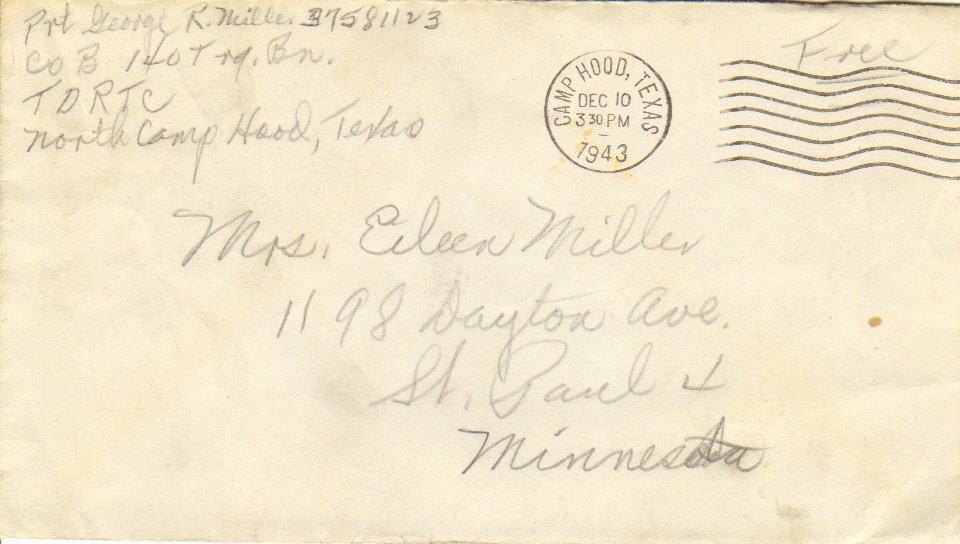 Pvt George R. Miller 37581123
Co B 140 Trg. Bn.
T D R T C
North Camp Hood, Texas
Free
CAMP HOOD, TEXAS
DEC 10
3 30 PM
1943
Mrs. Eileen Miller
1198 Dayton Ave.
St. Paul 4
Minnesota